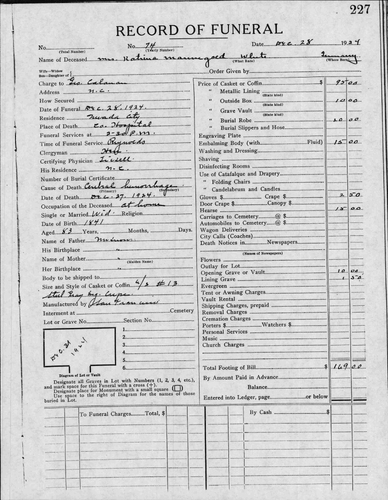 227
RECORD OF FUNERAL
No. (Total Number) No. 74 (Yearly Number) Date Dec. 28 1924
Name of Deceased Mrs. Katrina White Germany
Wife—Widow
Son—Daughter of Order Given by
Charge to Geo. Calanan
Address N.C.
How Secured
Date of Funeral Dec. 28, 1924.
Residence Nevada City
Place of Death Co. Hospital
Funeral Services at 2-30 P.M.
Time of Funeral Service
Clergyman
Certifying Physician
His Residence N.C.
Number of Burial Certificate
Cause of Death Cerebral hemorrhage
Date of Death Dec. 27, 1924.
Occupation of the Deceased at home
Single or Married Wid. Religion
Date of Birth 1841
Aged 83 Years, Months, Days
Name of Father
His Birthplace
Name of Mother (Maiden Name)
Her Birthplace
Body to be shipped to
Size and Style of Casket or Coffin 6/3 #13
Manufactured by
Interment at Cemetery
Lot or Grave No. Section No.
1.
2.
3.
4.
5.
6.
7.
Dec. 28 1924
Diagram of Lot or Vault
Designate all Graves in Lot with Numbers (1, 2, 3, 4, etc.),
and mark space for this Funeral with a cross (+).
Designate place for Monument with a small square
Use space to right of Diagram for the names of those
buried in Lot.
To Funeral Charges Total, $
Price of Casket or Coffin $ 95.00
" Metallic Lining (State Kind)
" Outside Box 10.00
(State Kind)
" Grave Vault (State Kind)
" Burial Robe 20.00
" Burial Slippers and Hose
Engraving Plate
Embalming Body (with Fluid) 15.00
Washing and Dressing
Shaving
Disinfecting Rooms
Use of Catafalque and Drapery
" Folding Chairs
" Candelabrum and Candles
Gloves $ Crape $ 2.50
Door Crape $ Canopy $
Hearse 15.00
Carriages to Cemetery @ $
Automobiles to Cemetery @ $
Wagon Deliveries
City Calls (Coaches)
Death Notices in Newspapers
(Names of Newspapers)
Flowers
Outlay for Lot
Opening Grave or Vault 10.00
Lining Grave 1.50
Evergreen
Tent or Awning Charges
Vault Rental
Shipping Charges, prepaid
Removal Charges
Cremation Charges
Porters $ Watchers $
Personal Services
Music
Church Charges
Total Footing of Bill $ 169.00
By Amount Paid in Advance
Balance
Entered into Ledger, page or below
By Cash $